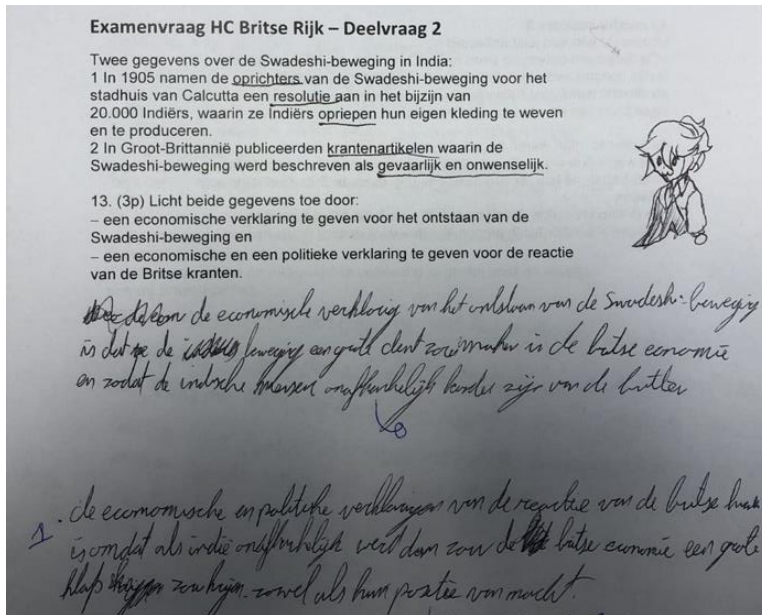 Examenvraag HC Britse Rijk – Deelvraag 2
Twee gegevens over de Swadeshi-beweging in India:
1 In 1905 namen de oprichters van de Swadeshi-beweging voor het
stadhuis van Calcutta een resolutie aan in het bijzijn van
20.000 Indiërs, waarin ze Indiërs opriepen hun eigen kleding te weven
en te produceren.
2 In Groot-Brittannië publiceerden krantenartikelen waarin de
Swadeshi-beweging werd beschreven als gevaarlijk en onwenselijk.
13. (3p) Licht beide gegevens toe door:
– een economische verklaring te geven voor het ontstaan van de
Swadeshi-beweging en
– een economische en een politieke verklaring te geven voor de reactie
van de Britse kranten.
de economische verklaring van het ontstaan van de Swadeshi-beweging
is dat de beweging een grote dent zou maken in de britse economie
en zodat de indische mensen onafhankelijk zijn van de britten
0
1. de economische en politieke verklaringen van de reactie van de britse
is omdat als indië onafhankelijk werd dan zou de britse economie een grote
klap zou krijgen zowel als hun positie van macht.